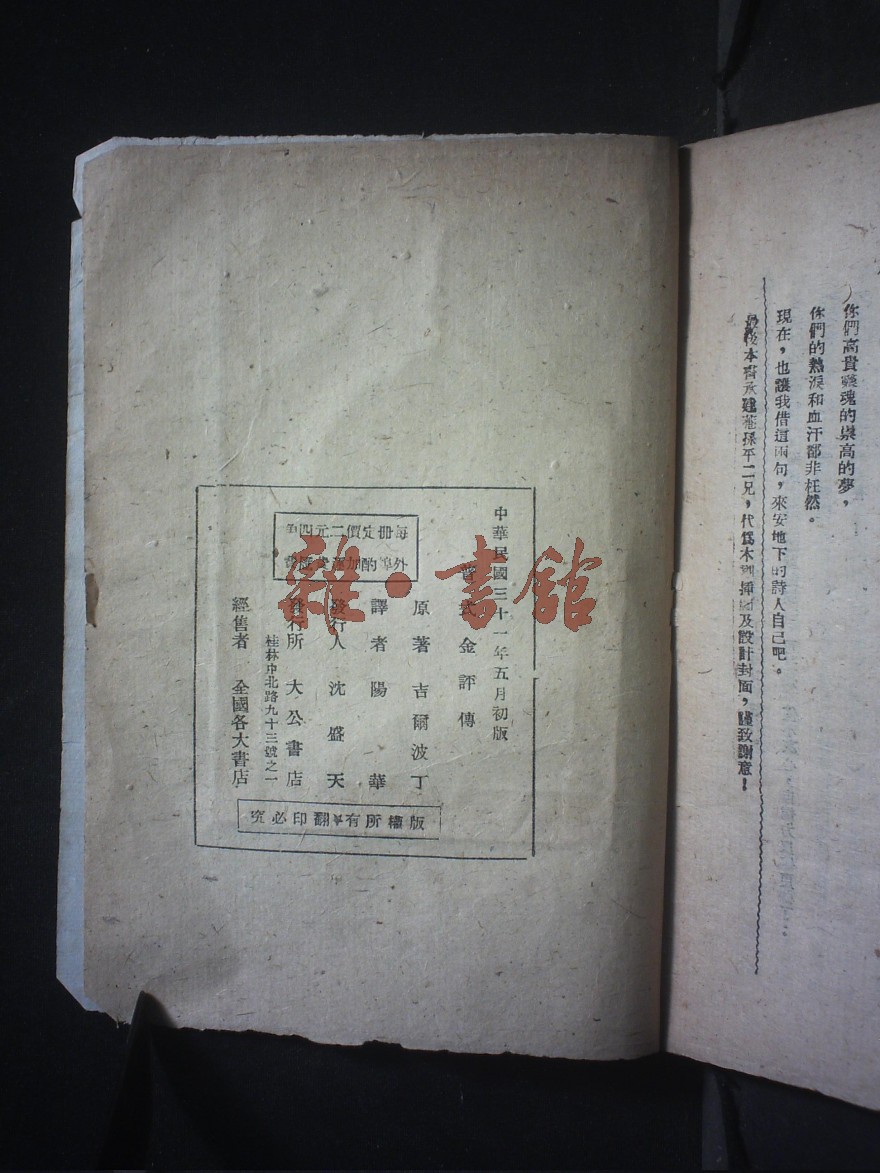 你們高貴靈魂的崇高的夢，
你們的熱淚和血汗都非枉然。
現在，也讓我借這兩句，來安地下的詩人自己吧。
最後本書承建菴孫平二兄，代爲木刻挿圖及設計封面，謹致謝意！
中華民國三十一年五月初版
普式金評傳
原著 吉爾波丁
譯者 陽華
發行人 沈盛天
發行所 大公書店
桂林中北路九十三號之一
經售者 全國各大書店
每册定價二元四角
外埠酌加
版權所有翻印必究
雜·書館